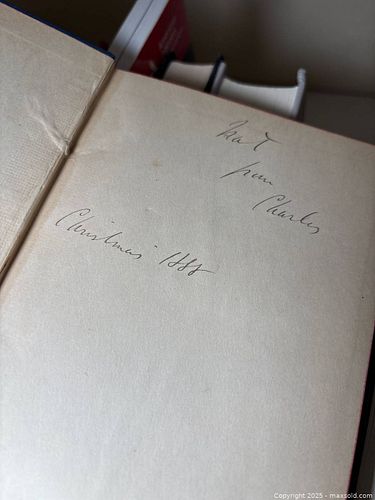 from
Charles
Christmas 1888
Copyright 2025 - maxsold.com